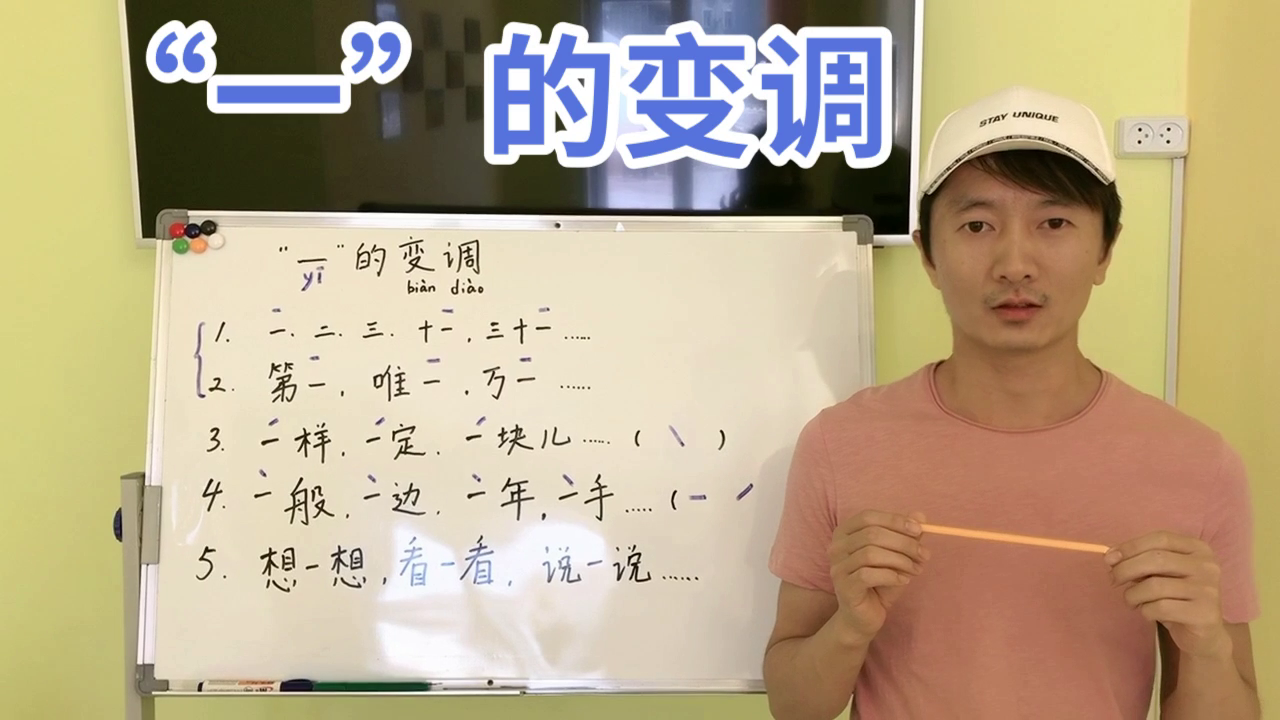 “一”的变调
STAY UNIQUE
“一”的变调
yī biàn diào
1. 一. 二. 三. 十一, 三十一 ......
2. 第一, 唯一, 万一 ......
3. 一样, 一定, 一块儿 ...... ( ˋ )
4. 一般, 一边, 一年, 一手 ...... ( ˉ ˊ
5. 想一想, 看一看, 说一说 ......